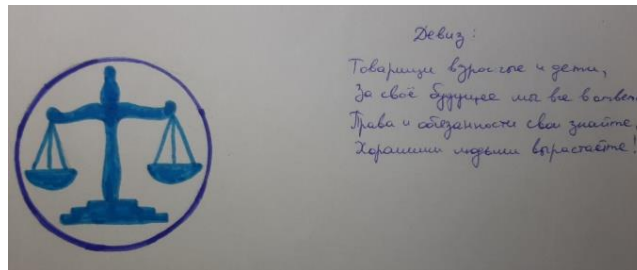 Девиз:
Товарищи взрослые и дети,
За своё будущее мы все в ответе
Права и обязанности свои знайте,
Хорошими людьми вырастайте!